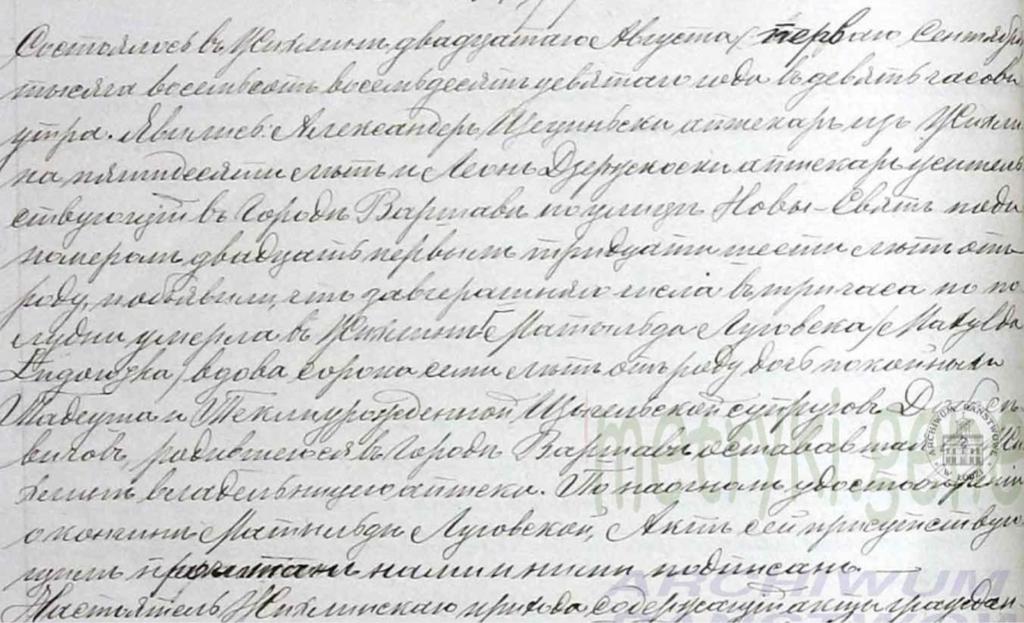 Состоялось въ Жихлинѣ двадцатаго Августа / перваго Сентября
тысяча восемьсотъ восемьдесятъ девятаго года въ девять часовъ
утра. Явились: Александръ аптекарь изъ Жихли
на пятидесяти лѣтъ и Леонъ аптекарь жительс
ствующій въ Городѣ Варшавѣ по улицѣ Новы-Святъ подъ
номеромъ двадцать первымъ тридцати шести лѣтъ отъ
роду, и объявили, что завчерашняго числа въ три часа по по
лудни умерла въ Жихлинѣ Матильда Луговска / Matylda
Ługowska / вдова сорока семи лѣтъ отъ роду дочь покойныхъ
Тадеуша и Теклиурожденной супруговъ
вичовъ, родившаяся въ Городѣ Варшавѣ оставав
хлинѣ владельницею аптеки. По наочномъ удостовѣреніи
о кончинѣ Матильды Луговской, Актъ сей присутствую
щимъ прочитанъ нами и ними подписанъ.
Настоятель Жихлинскаго прихода содержащій акты граждан
metryki.gen
ARCHIWUM PAŃSTWOWE
ARCHIWUM